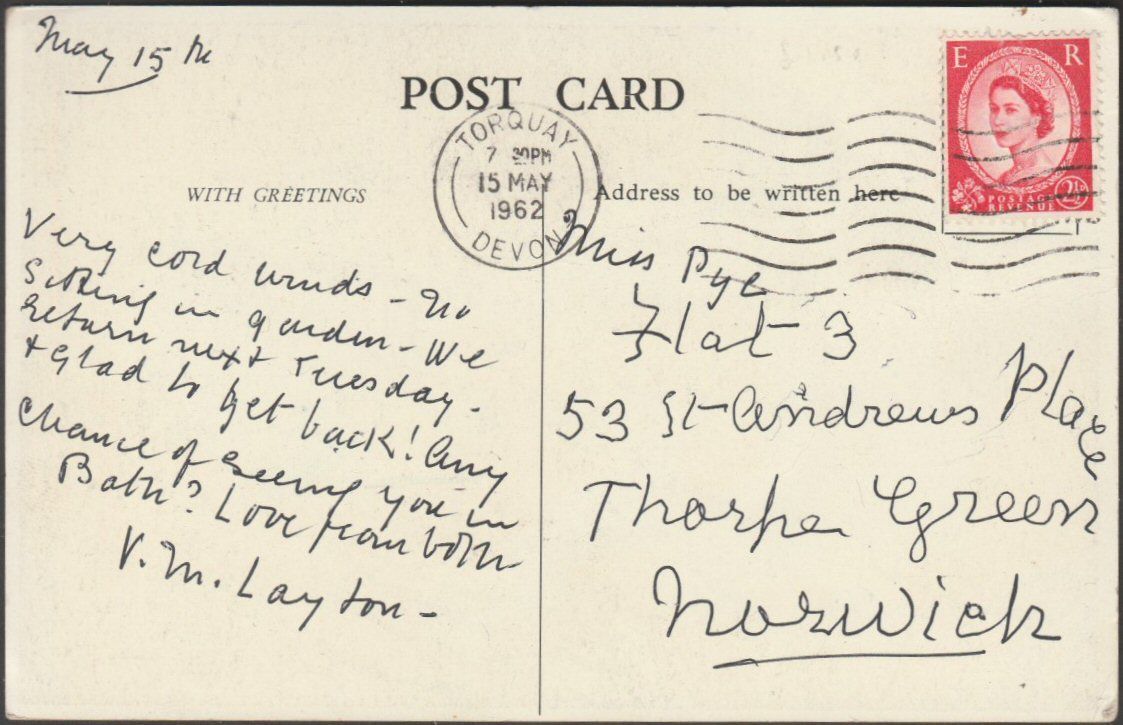 May 15th
POST CARD
TORQUAY
7 30PM
15 MAY
1962
DEVON
E R
POSTAGE
REVENUE
2½D
WITH GREETINGS
Address to be written here
Very cold winds - No
Sitting in garden - We
return next Tuesday -
+ Glad to get back! Any
chance of seeing you in
Bath? Love from both
V. M. Layton -
Miss Pye
Flat 3
53 St Andrews Place
Thorpe Green
Norwich